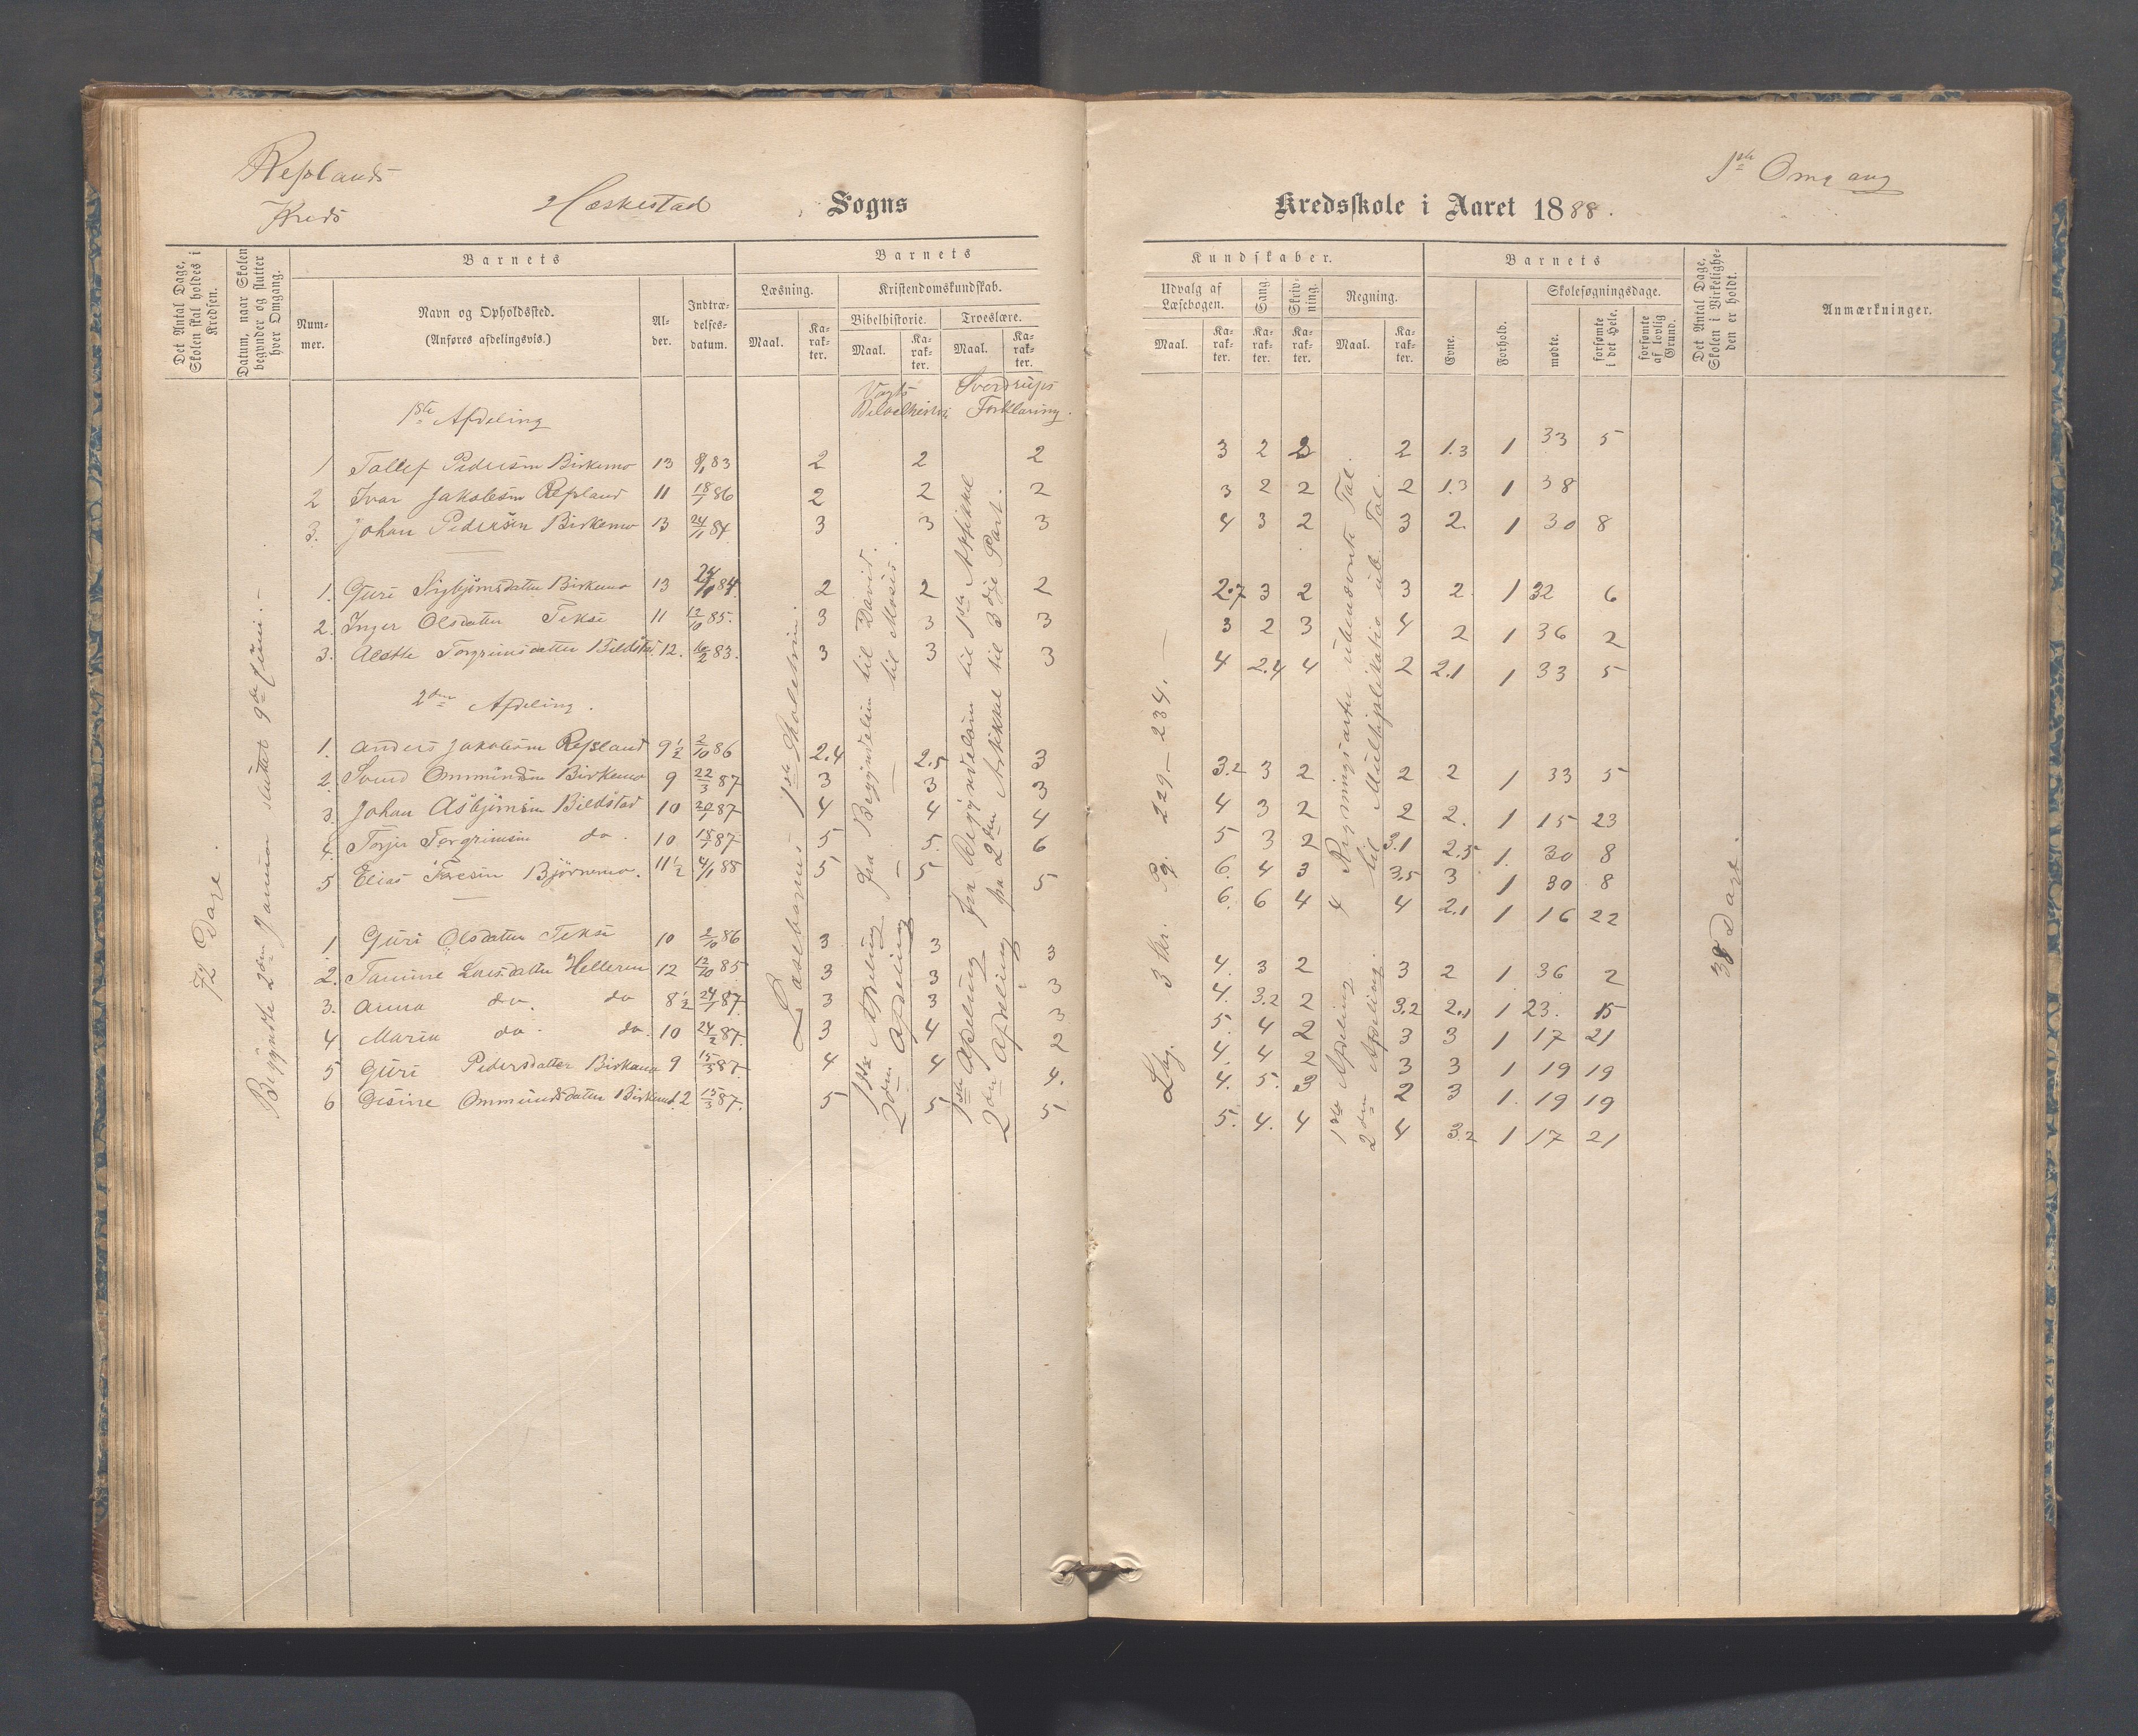 Resslands
Kreds
Heskestad Sogns
Kredsskole i Aaret 1888.
1ste Omgang
Det Antal Dage, Skolen skal holdes i Kredsen.
Datum, naar Skolen begynder og slutter hver Omgang.
Barnets
Nummer.
Navn og Opholdssted.
(Anføres afdelingsvis.)
Alder.
Indtrædelsesdatum.
Barnets
Læsning.
Maal.
Karakter.
Kristendomskundskab.
Bibelhistorie.
Maal.
Karakter.
Troeslære.
Maal.
Karakter.
Kundskaber.
Udvalg af Læsebogen.
Maal.
Karakter.
Sang
Karakter.
Skrivning.
Karakter.
Regning.
Maal.
Karakter.
Barnets
Evne.
Forhold.
Skolesøgningsdage.
mødte.
forsømte i det Hele.
forsømte af lovlig Grund.
Det Antal Dage, Skolen i Virkeligheden er holdt.
Anmærkninger.
Vogts Bibelhistorie
Sverdrups Forklaring.
1ste Afdeling
1 Tallef Pedersen Birkemo 13 8/1 83 2 2 2 3 2 2 2 1.3 1 33 5
2 Ivar Jakobsen Ressland 11 18/1 86 2 2 2 3 2 2 2 1.3 1 38
3. Johan Pedersen Birkemo 13 24/1 84 3 3 3 4 3 2 3 2. 1 30 8
1. Guri Sigbjørnsdatter Birkemo 13 24/1 84. 2 2 2 2.7 3 2 3 2. 1 32 6
2. Inger Olsdatter Tekse 11 12/10 85. 3 3 3 3 2 3 4 2 1 36 2
3. Alette Torgrimsdatter Bildstad 12. 16/2 83. 3 3 3 4 2.4 4 2 2.1 1 33 5
2den Afdeling.
1. Anders Jakobsen Ressland 9 1/2 2/10 86 2.4 2.5 3 3.2 3 2 2 2 1 33 5
2. Svend Ommundsen Birkemo 9 22/3 87 3 3 3 4 3 2 2 2. 1 15 23
3. Johan Asbjørnsen Bildstad 10 87 4 4 4 5 3 2 3.1 2.5 1. 30 8
4. Torjer Torgrimsen do. 10 87 5 5. 6 6. 4 3 3.5 3 1 30 8
5 Elias Bjørnemo. 11 1/2 4/1 88 5 5 5 6. 6 4 4 2.1 1 16 22
1 Guri Olsdatter Tekse 10 2/10 86 3 3 3 4. 3 2 3 2 1 36 2
2. Tamine Larsdatter Helleren 12 12/10 85 3 3 3 4. 3.2 2 3.2 2.1 1 23. 15
3. Anna do. do 8 1/2 24/1 87. 3 3 3 5. 4 2 3 3 1 17 21
4 Maria do. do. 10 24/2 87. 3 4 2 4. 4 2 3 3 1 19 19
5 Guri Pedersdatter Birkemo 9 15/3 87. 4 4 4. 4. 5. 3 2 3 1. 19 19
6 Gesine Ommundsdatter Birkemo 12 15/3 87. 5 5 5 5. 4. 4 4 3.2 1 17 21
72 Dage.
Begyndte 2den Januar sluttet 9de Juni.
Læsebogens 1ste Skoletrin.
1ste Afdeling fra Begyndelsen til David.
2den Afdeling - til Moses.
1ste Afdeling fra Begyndelsen til 1ste Artikkel
2den Afdeling fra 2den Artikkel til 3die Part.
3 Kr. Pg. 229 - 234.
1ste Afdeling 4 Regningsarter ubenævnte Tal.
2den Afdeling. til Multiplikatio ub. Tal.
38 Dage.